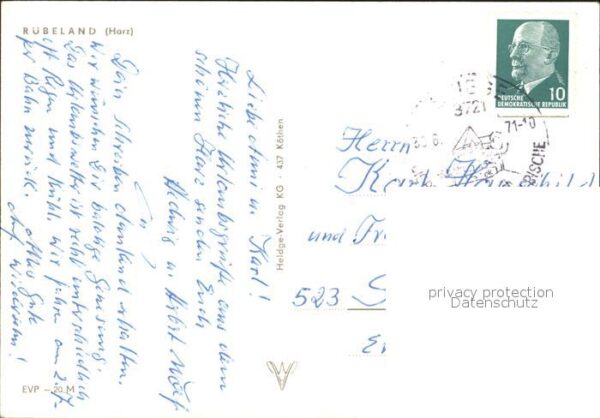 RÜBELAND (Harz)
Liebe Anni u. Karl!
Herzliche Urlaubsgrüße aus dem
schönen Harz senden Euch
Hedwig u. Herbst
Dein Schreiben dankend erhalten.
Wir wünschen Dir baldige Genesung.
Das Urlaubswetter ist recht unterschiedlich
oft Regen und kühl. Wir fahren am 2.7.
per Bahn zurück. Alles Gute
Auf Wiedersehn!
EVP - 20 M
Heldge-Verlag KG 437 Köthen
10
DEUTSCHE
DEMOKRATISCHE REPUBLIK
3721
30.6.71-10
Herrn
Karl
und
523
privacy protection
Datenschutz